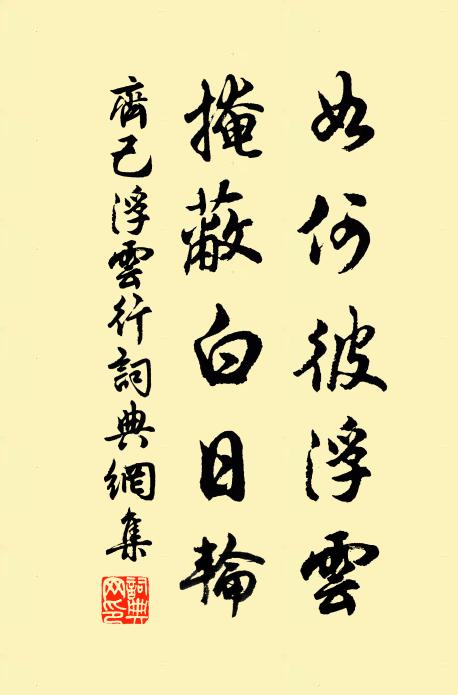 如何彼浮雲
掩蔽白日輪
齊己浮雲行詞典網集
詞典網印